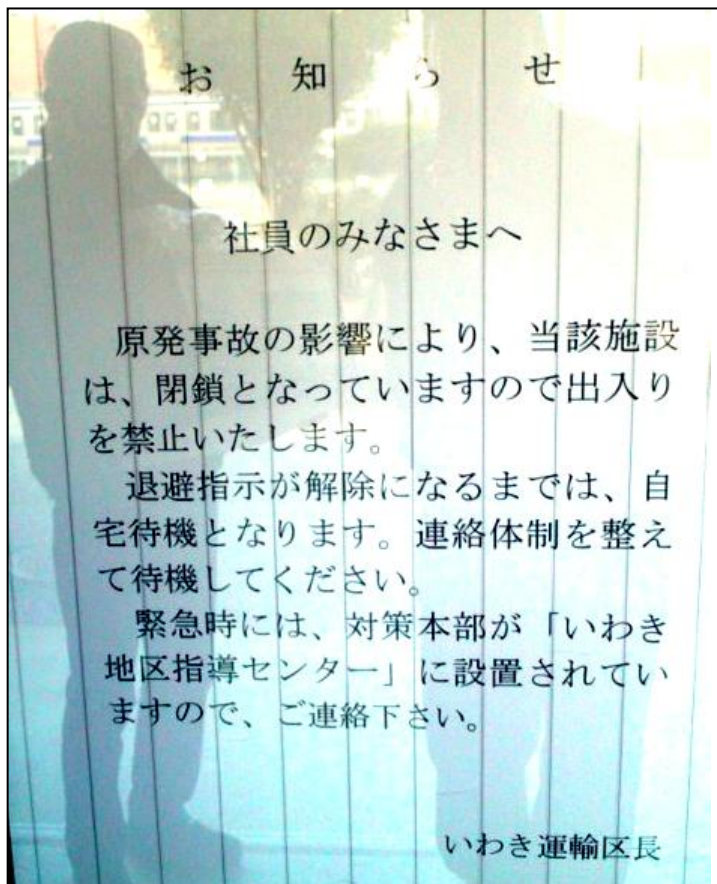 お知らせ
社員のみなさまへ
原発事故の影響により、当該施設
は、閉鎖となっていますので出入り
を禁止いたします。
退避指示が解除になるまでは、自
宅待機となります。連絡体制を整え
て待機してください。
緊急時には、対策本部が「いわき
地区指導センター」に設置されてい
ますので、ご連絡下さい。
いわき運輸区長